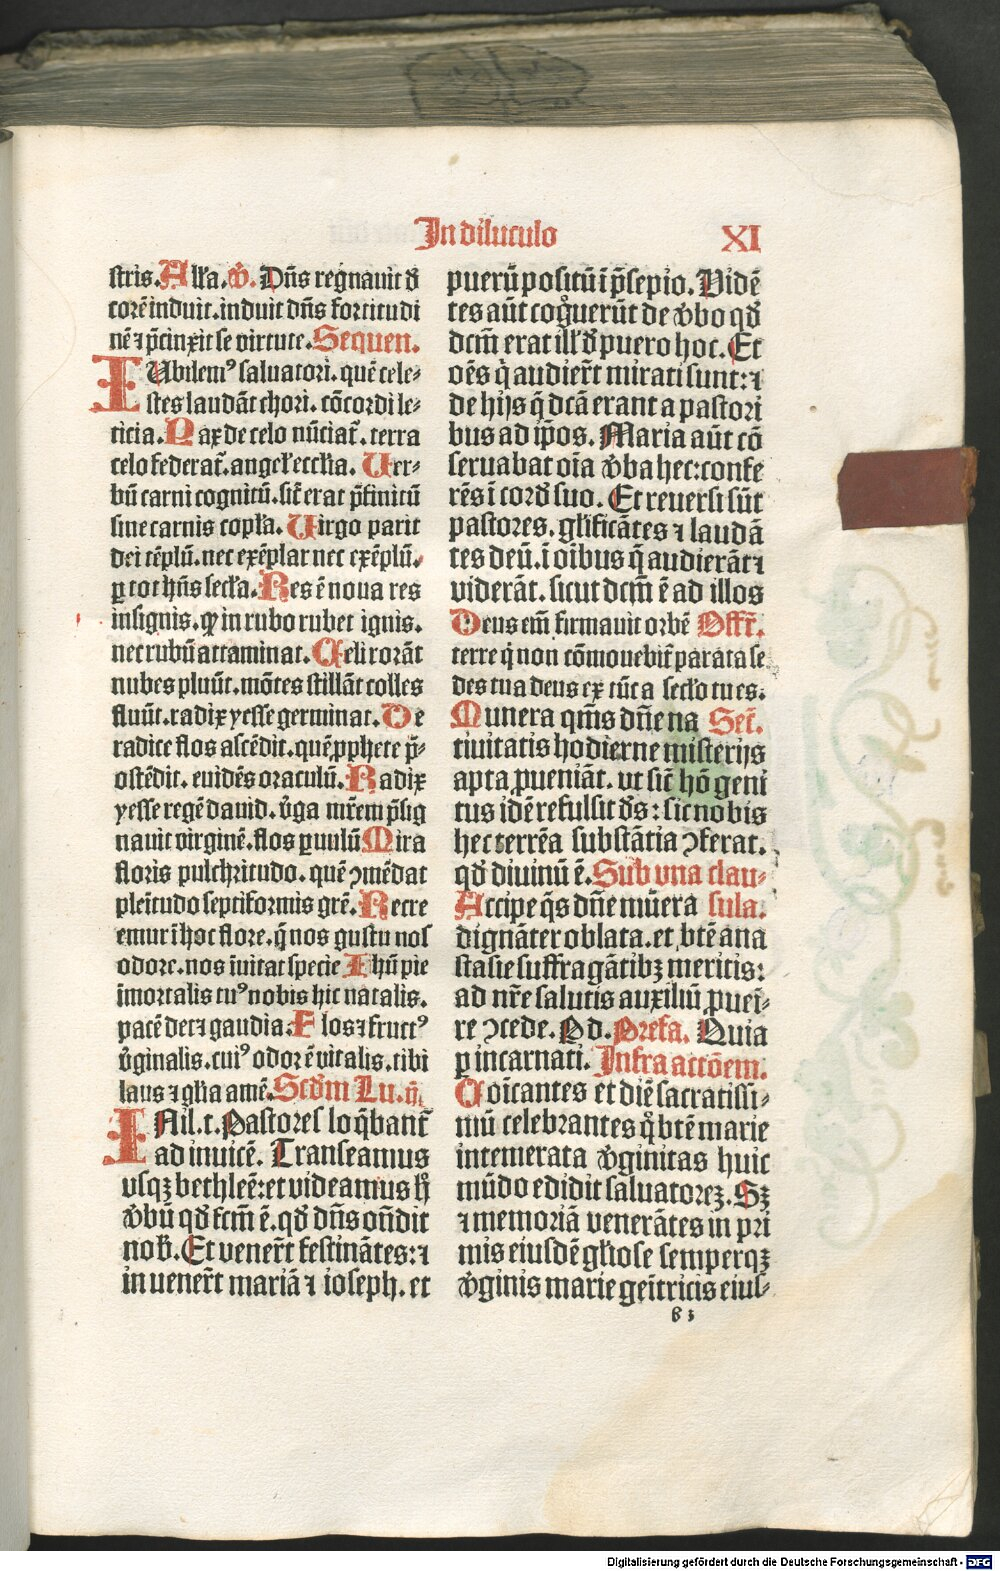 In diluculo
XI
stris. Alľa. ꝟ. Dn̄s regnauit dꝰ
corē induit. induit dn̄s fortitudi
nē ⁊ p̄cinxit se virtute. Sequen.
IUbilemꝰ saluatori. quē cele⸗
stes laudāt chori. cōcordi le⸗
ticia. Pax de celo nūciat̄. terra
celo federat̄. angeľ eccľia. Uer⸗
bū carni cognitū. sic̄ erat p̄finitū
sine carnis copľa. Uirgo parit
dei tēplū. nec exēplar nec exēplū.
ꝑ tot hn̄s secľa. Res ē noua res
insignis. ꝙ in rubo rubet ignis.
nec rubū attaminat. Celi rorāt
nubes pluūt. mōtes stillāt colles
fluūt. radix yesse germinat. De
radice flos ascēdit. quē ꝓphete p̄⸗
ostēdit. euidēs oraculū. Radix
yesse regē dauid. v̄ga mr̄em p̄sig
nauit virginē. flos ꝑuulū Mira
floris pulchritudo. quē ↄmēdat
pleītudo septiformis gr̄e. Recre
emur ī hoc flore. q̄ nos gustu nos
odore. nos īuitat specie Ihū pie
īmortalis tuꝰ nobis hic natalis.
pacē det ⁊ gaudia. Flos ⁊ fructꝰ
v̄ginalis. cuiꝰ odor ē vitalis. tibi
laus ⁊ gľia amē. Scd̄m Lu. ij.
IN il. t. Pastores loq̄bant̄
ad inuicē. Transeamus
vsqꝫ bethleē: et videamus h̊
ꝟbū qď fcm̄ ē. qď dn̄s on̄dit
nob̄. Et venert̄ festinātes: ⁊
inuenert̄ mariā ⁊ ioseph. et
puerū positū ī p̄sepio. Vidē
tes aūt cog̊uerūt de ꝟbo qď
dcm̄ erat ilľ ď puero hoc. Et
oēs q̇ audiert̄ mirati sunt: ⁊
de hijs q̄ dcā erant a pastori
bus ad ip̄os. Maria aūt cō
seruabat oīa ꝟba hec: confe
rēs ī corď suo. Et reuersi sūt
pastores. gľificātes ⁊ laudā
tes deū. ī oībus q̄ audierāt ⁊
viderāt. sicut dcm̄ ē ad illos
Deus em̄ firmauit orbē Offr̄.
terre q̇ non cōmouebit̄ parata se
des tua deus ex tūc a secľo tu es.
Munera qm̄s dn̄e na Sec̄.
tiuitatis hodierne misterijs
apta ꝓueniāt. vt sic̄ hō geni
tus idē refulsit ds̄: sic nobis
hec terrēa substātia ↄferat.
qď diuinū ē. Sub vna clau⸗
Accipe q̄s dn̄e mūera sula.
dignāter oblata. et bt̄e ana
stasie suffragātibꝫ meritis:
ad nr̄e salutis auxiliū ꝓueī⸗
re ↄcede. Pd. Prefa. Quia
ꝑ incarnati. Infra acc̄oem.
Coīcantes et diē sacratissi⸗
mū celebrantes q̊ bt̄e marie
intemerata ꝟginitas huic
mūdo edidit saluatoreꝫ. Sꝫ
⁊ memoriā venerātes in pri
mis eiusdē gľiose semperqꝫ
ꝟginis marie geītricis eius⸗
b3
Digitalisierung gefördert durch die Deutsche Forschungsgemeinschaft - DFG